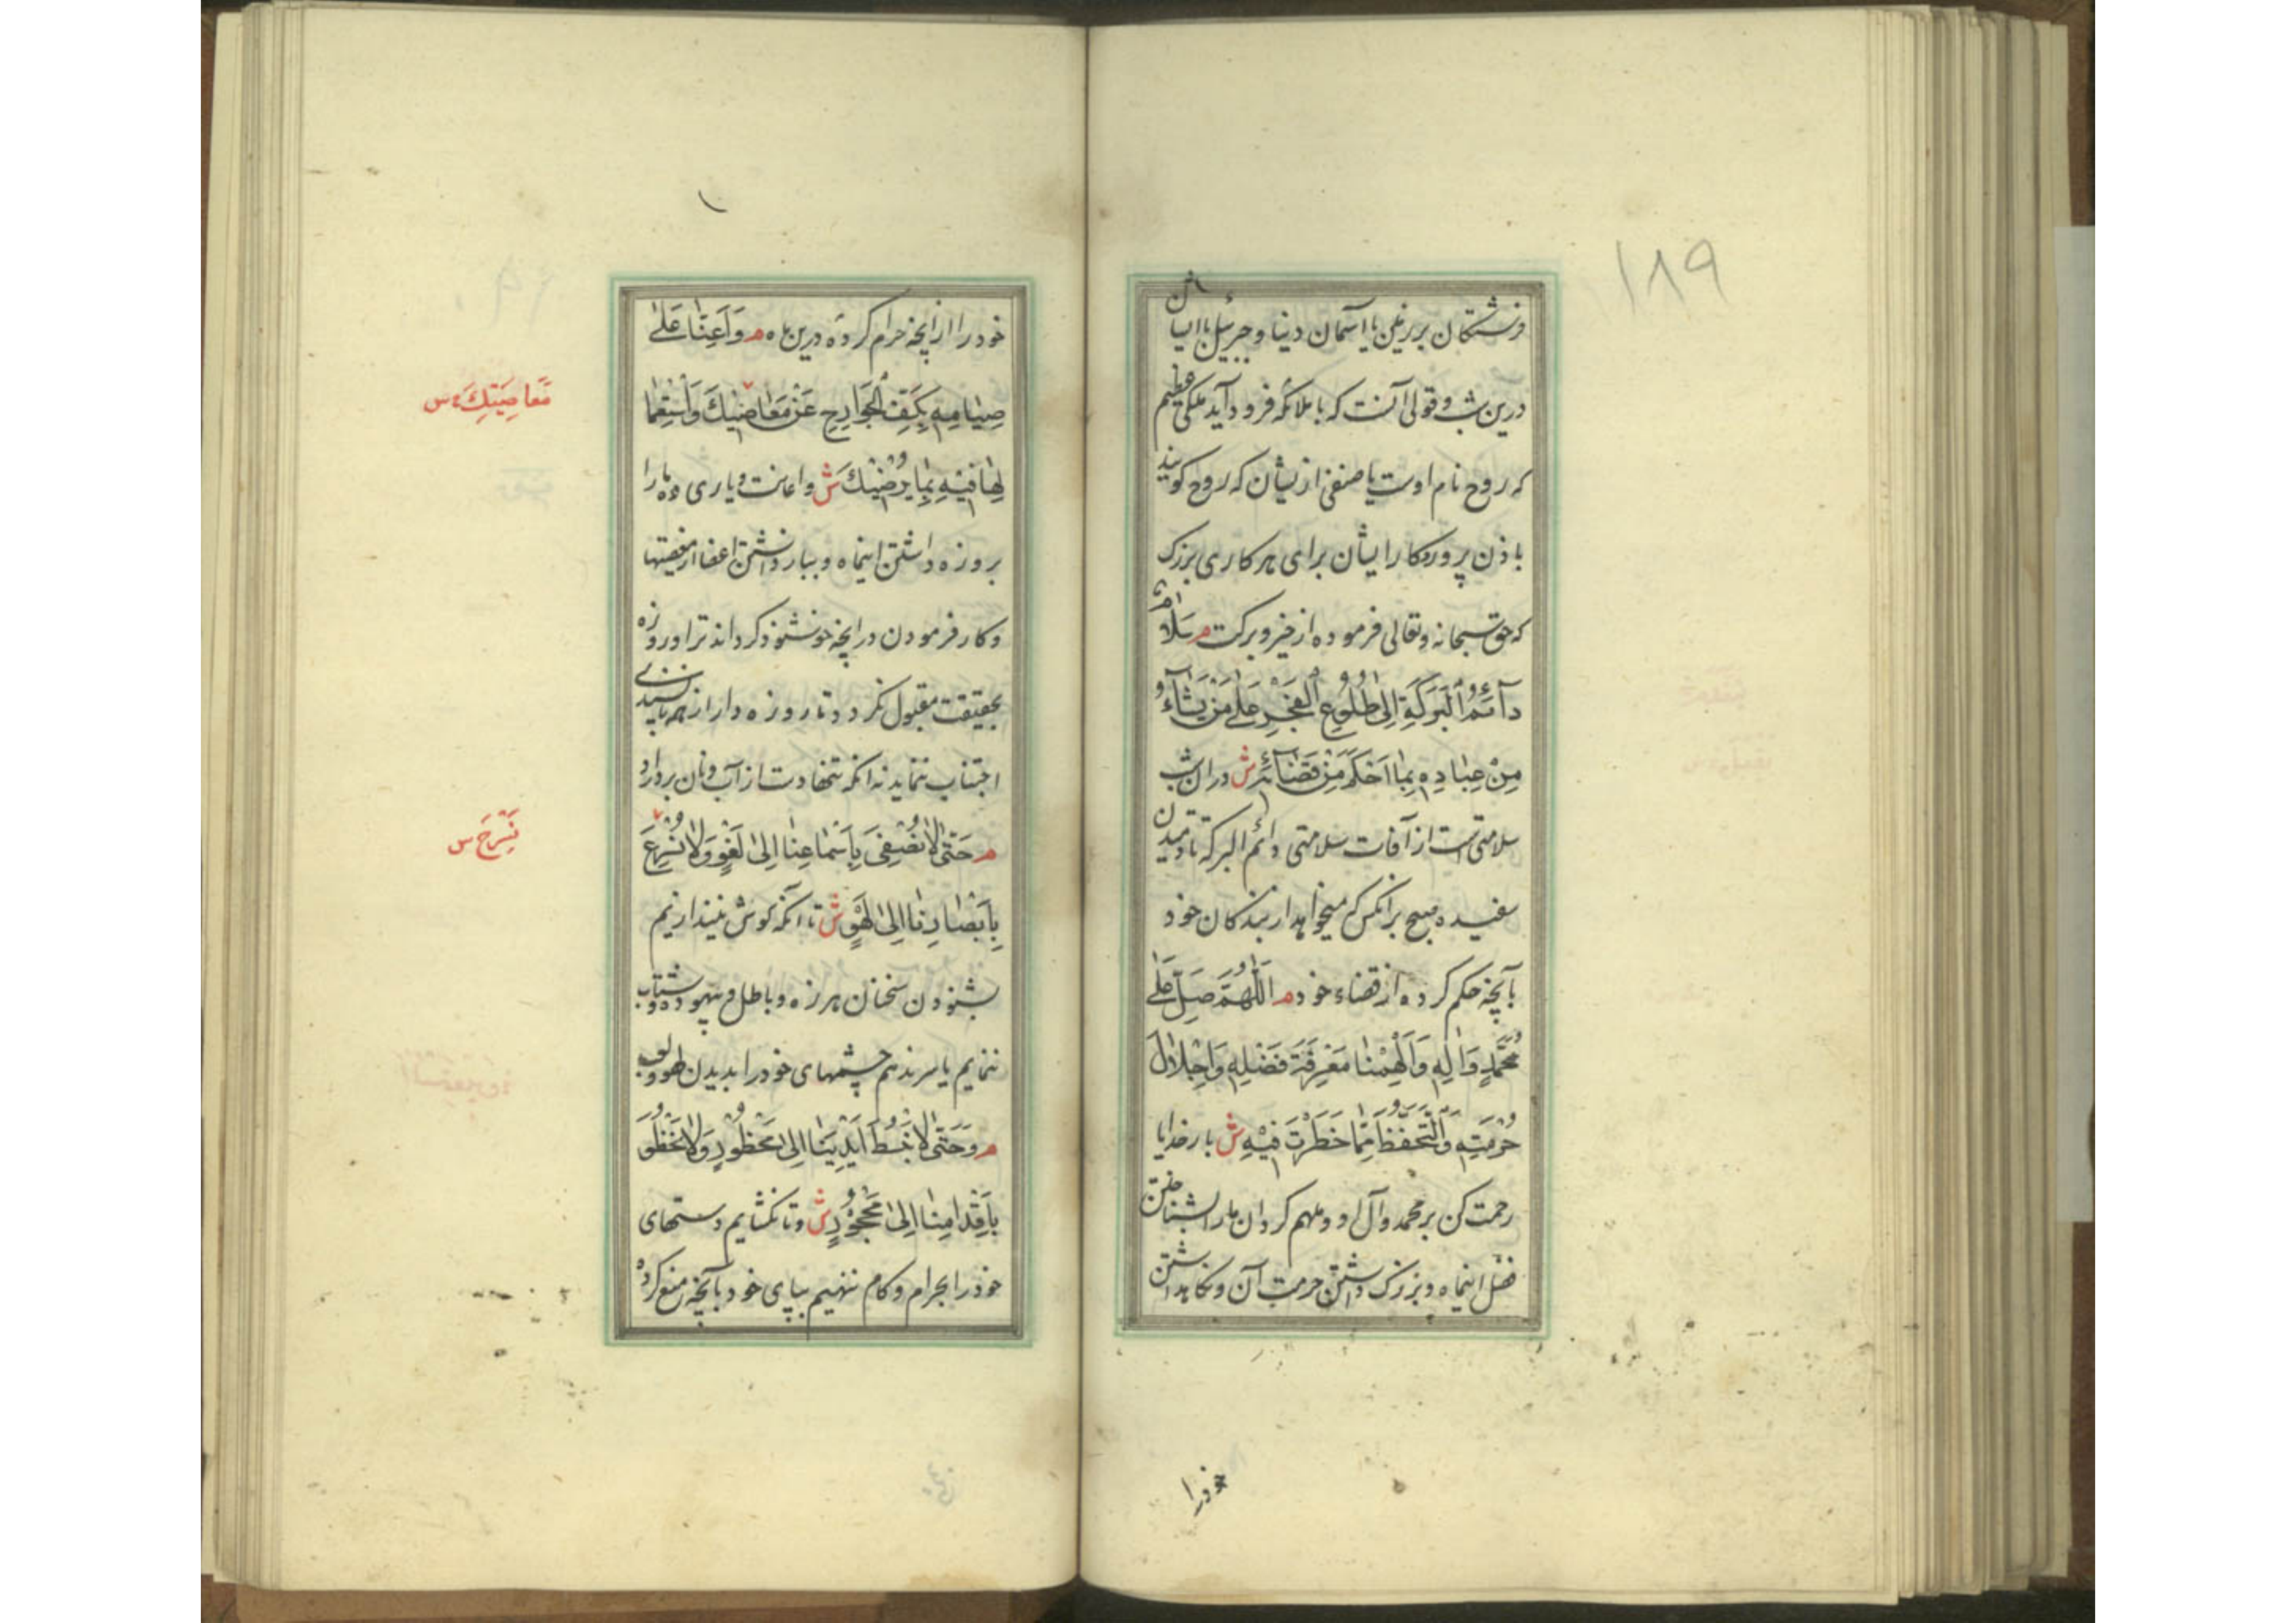 ۱۸۹
فرشتکان بر زمین یا آسمان دنیا و جبرئیل با ایشان
درین شب و قولی آنست که با ملائکه فرود آید ملکی عظیم
که روح نام اوست یا صنفی از یشان که روح کویند
باذن پروردکار ایشان برای هر کاری بزرک
که حق سبحانه و تعالی فرموده از خیر و برکت م سَلامٌ
دآئِمُ الْبَرَکَةِ اِلیٰ طُلُوعِ الْفَجْرِ عَلیٰ مَنْ یَشآءُ
مِنْ عِبادِهِ بِما اَحْکَمَ مِنْ قَضآئِهِ ش در ان شب
سلامتی است از آفات سلامتی دائم البرکة تا دمیدن
سفیده صبح بر انکس که میخواهد از بندکان خود
بآنچه حکم کرده از قضاء خود م اَللّٰهُمَّ صَلِّ عَلیٰ
مُحَمَّدٍ وَالِهِ وَاَلْهِمْنا مَعْرِفَةَ فَضْلِهِ وَاِجْلالَ
حُرْمَتِهِ وَالتَّحَفُّظَ مِمّا حَظَرْتَ فیهِ ش بار خدایا
رحمت کن بر محمد و آل او و ملهم کردان ما را بشناختن
فضل اینماه و بزرک داشتن حرمت آن و نکاهداشتن
خود را
خود را از انچه حرام کرده درین ماه م وَاَعِنّا عَلیٰ
صِیامِهِ بِکَفِّ الْجَوارِحِ عَنْ مَعاصیكَ وَاسْتِعْما
مَعاصِیَتِكَ س
لِها فیهِ بِما یُرْضیكَ ش و اعانت و یاری ده ما را
بروزه داشتن اینماه و بباز داشتن اعضا از معصیتها
و کار فرمودن در انچه خوشنود کرداند ترا و روزه
بحقیقت مقبول نکردد تا روزه دار از همه ناپسندی
اجتناب ننماید نه انکه همتخا دست از آب و نان بردارد
م حَتّیٰ لا نُصْغِیَ بِاَسْماعِنا اِلیٰ لَغْوٍ وَلا نُسْرِعَ
نَسْرَحَ س
بِاَبْصارِنا اِلیٰ لَهْوٍ ش تا آنکه کوش نیندازیم
بشنودن سخنان هرزه و باطل و بیهوده و شتاب
ننمایم یا سر ندهم چشمهای خود را بدیدن لهو و لعب
م وَحَتّیٰ لا نَبْسُطَ اَیْدِیَنا اِلیٰ مَحْظُورٍ وَلا نَخْطُوَ
بِاَقْدامِنا اِلیٰ مَحْجُورٍ ش و تا نکشایم دستهای
خود را بحرام و کام ننهیم بپای خود بآنچه منع کرده